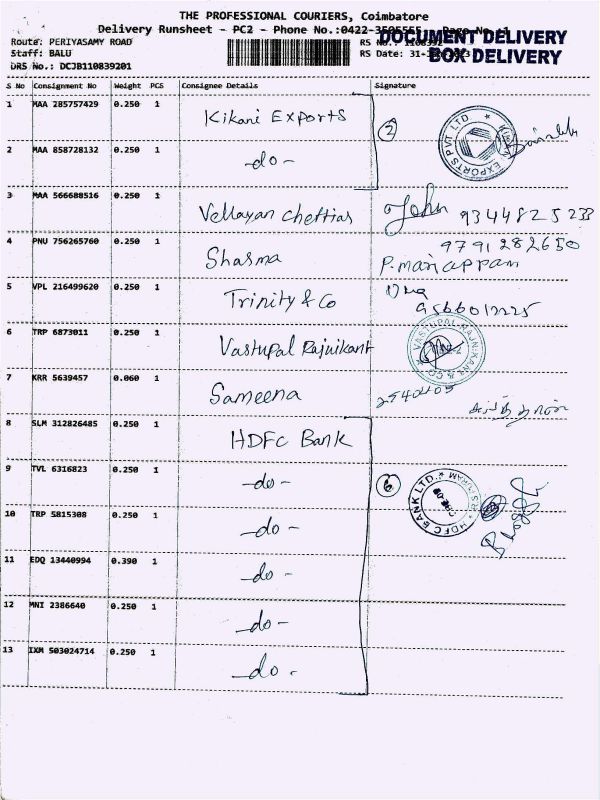 THE PROFESSIONAL COURIERS, Coimbatore
Delivery Runsheet - PC2 - Phone No.:0422-3505555 Page No. 1
DOCUMENT DELIVERY
BOX DELIVERY
Route: PERIYASAMY ROAD
RS No.:
Staff: BALU
RS Date: 31-
DRS No.: DCJB110839201
S No Consignment No Weight PCS Consignee Details Signature
1 MAA 285757429 0.250 1 Kikani Exports
2 MAA 858728132 0.250 1 -do-
2
EXPORTS PVT LTD
3 MAA 566688516 0.250 1 Vellayan Chettiar John 9344825233
4 PNU 756265760 0.250 1 Sharma 9791282650
P. mariappan
5 VPL 216499620 0.250 1 Trinity & Co
6 TRP 6873011 0.250 1 Vastupal Rajnikant
VASTUPAL RAJNIKANT & CO
7 KRR 5639457 0.060 1 Sameena
8 SLM 312826485 0.250 1 HDFC Bank
9 TVL 6316823 0.250 1 -do-
6
HDFC BANK LTD.
10 TRP 5815308 0.250 1 -do-
11 EDQ 13440994 0.390 1 -do-
12 MNI 2386640 0.250 1 -do-
13 IXM 503024714 0.250 1 -do-